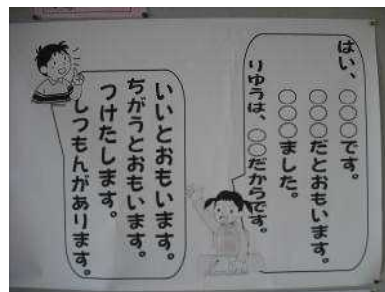 はい、○○○です。
○○○だとおもいます。
○○○ました。
りゆうは、○○だからです。
いいとおもいます。
ちがうとおもいます。
つけたします。
しつもんがあります。